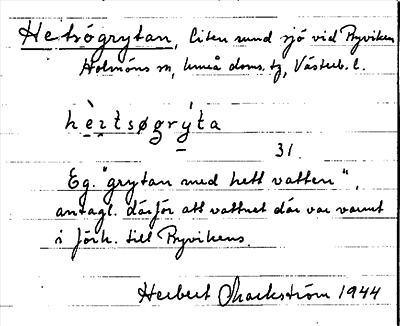 Hetsögrytan, liten rund sjö vid Ryviken
Holmöns sn, Umeå doms. tg, Västerb. l.
hè̱ṟtsøgrý̱ta
31.
Eg. "grytan med hett vatten",
antagl. därför att vattnet där var varmt
i förh. till Ryvikens.
Herbert Markström 1944